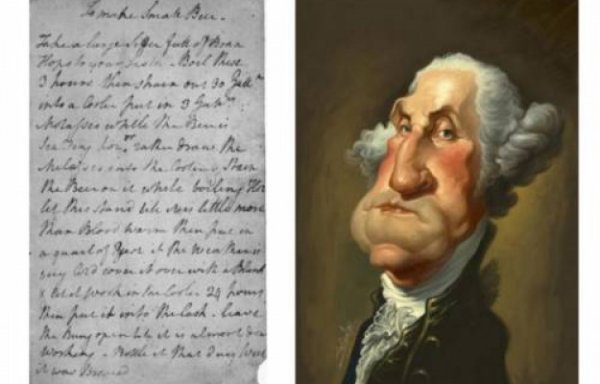 To make Small Beer.
Take a large Siffer full of Bran
Hops to your Taste. Boil these
3 hours then strain out 30 Gallns
into a Cooler put in 3 Gallns
Molasses while the Beer is
Scalding Hot or rather draw the
Melasses into the Cooler & Strain
the Beer on it while boiling Hot
let this stand till it is little more
than Blood warm then put in
a quart of Yest if the Weather is
very Cold cover it over with a Blank
& let it Work in the Cooler 24 hours
then put it into the Cask - leave
the Bung open till it is almost don
Working - Bottle it that day Week
it was Brewed